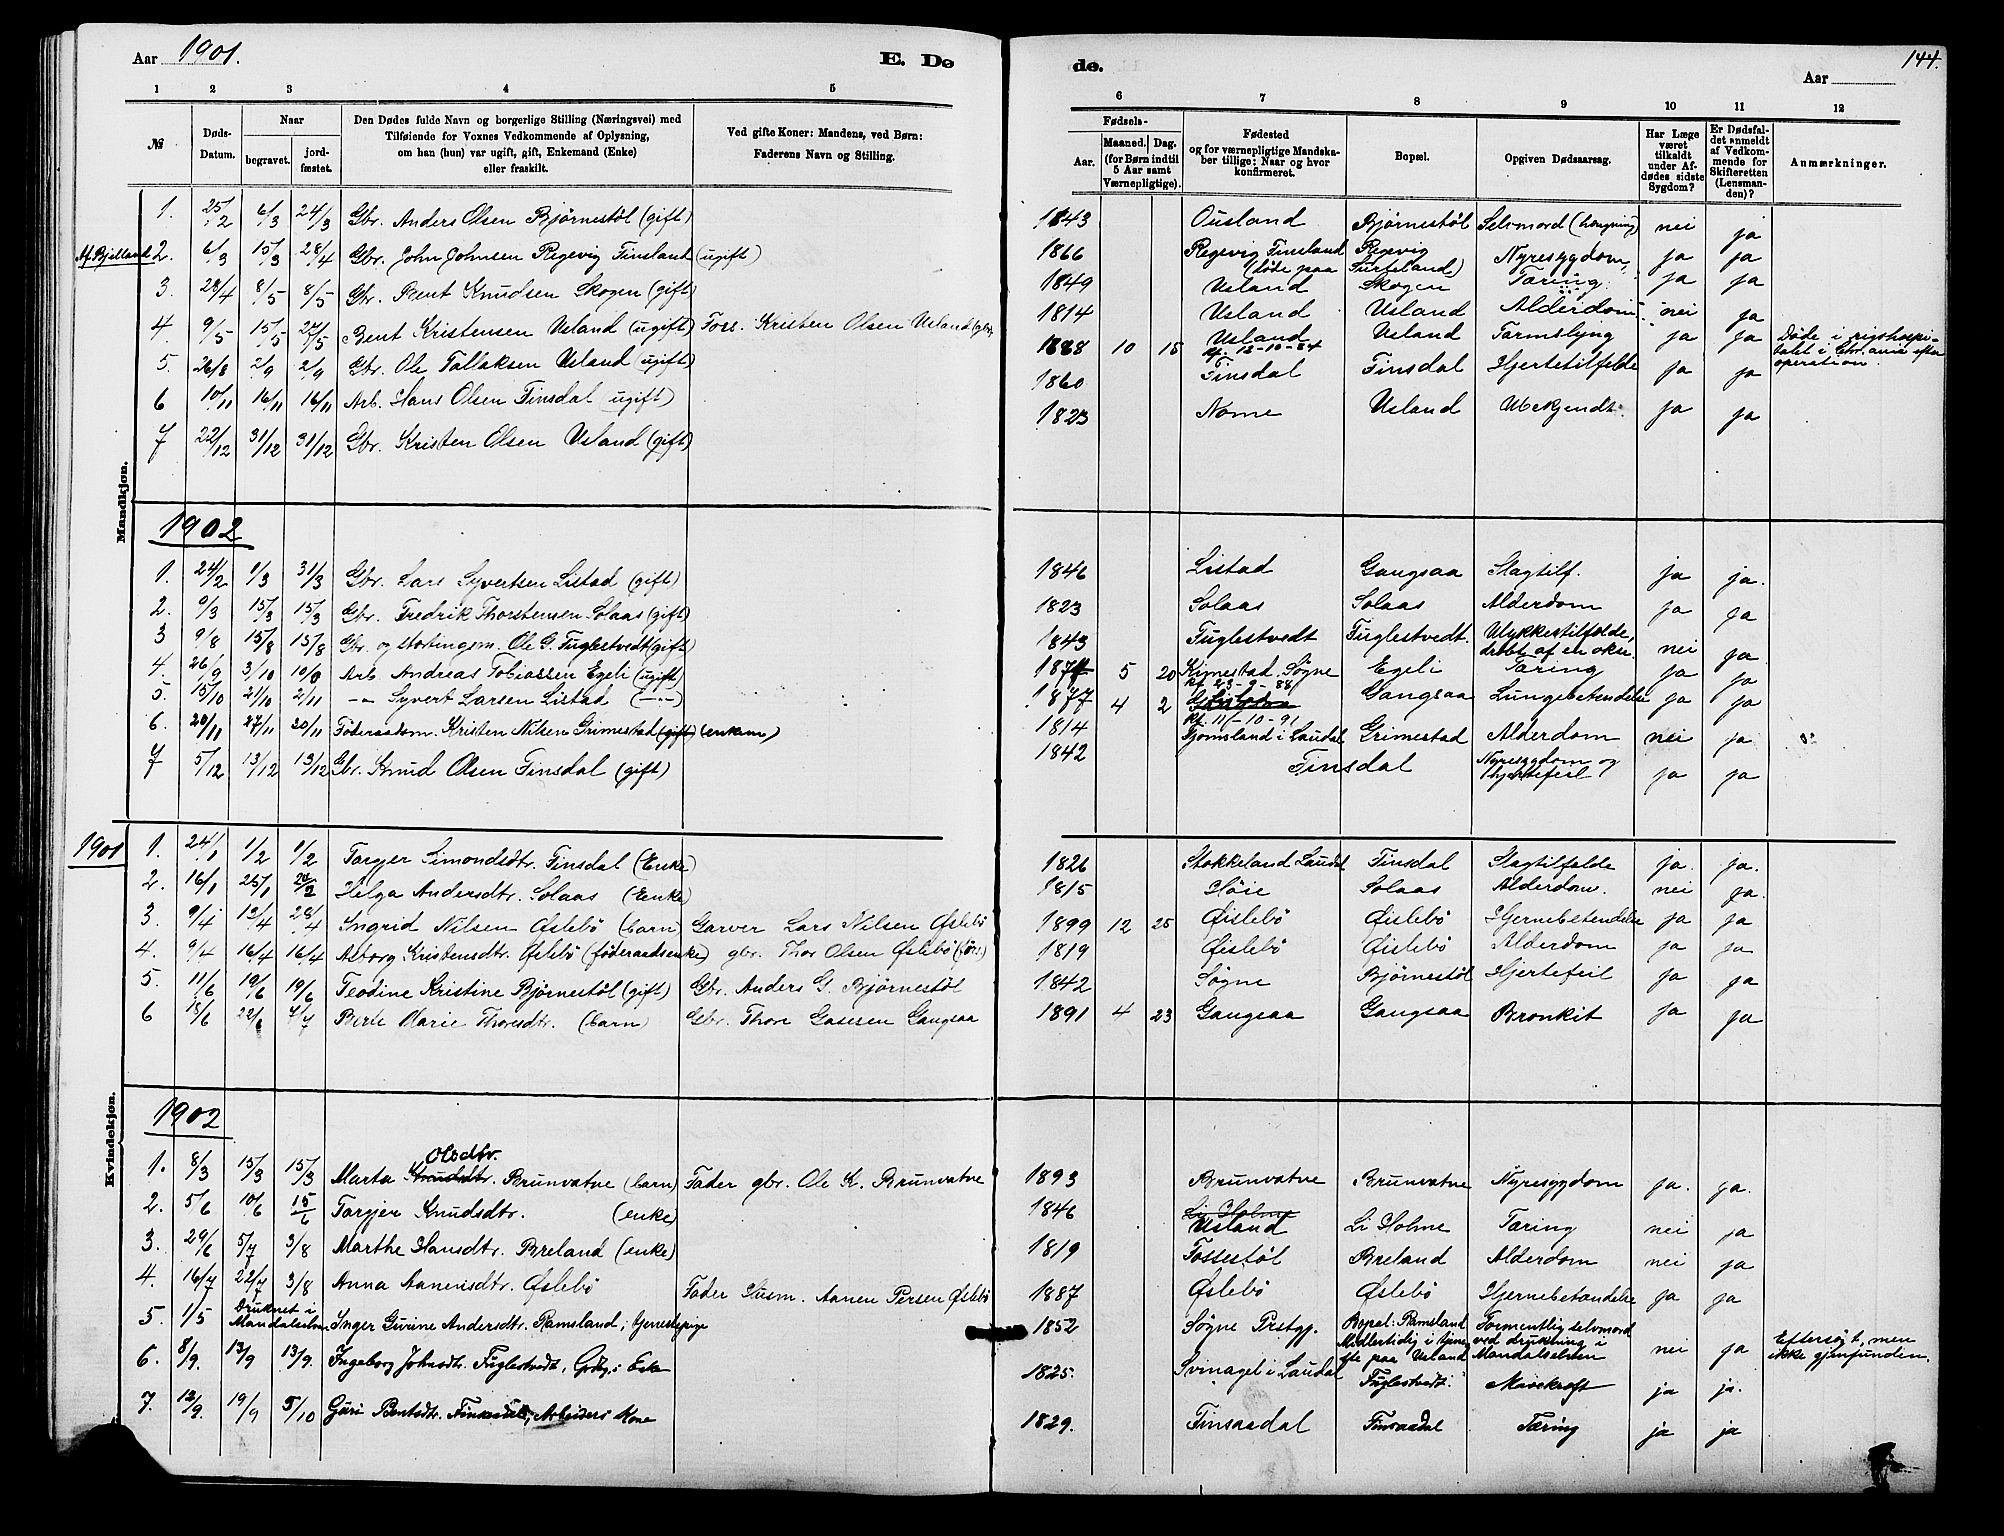 Aar 1901. E. Dø
1 2 3 4 5
№
Døds-Datum.
Naar
begravet. jordfæstet.
Den Dødes fulde Navn og borgerlige Stilling (Næringsvei) med
Tilføiende for Voxnes Vedkommende af Oplysning,
om han (hun) var ugift, gift, Enkemand (Enke)
eller fraskilt.
Ved gifte Koner: Mandens, ved Børn:
Faderens Navn og Stilling.
Mandkjøn.
1. 25/2 6/3 24/3 Gbr. Anders Olsen Bjørnestøl (gift)
Af Bjelland 2. 6/3 15/3 28/4 Gbr. John Johnsen Regevig Finsland (ugift)
3. 28/4 8/5 8/5 Gbr. Bent Knudsen Skogen (gift)
4. 9/5 15/5 27/5 Bent Kristensen Usland (ugift) Foss. Kristen Olsen Usland (gbr.
5. 26/8 2/9 2/9 Gbr. Ole Tallaksen Usland (ugift)
6 10/11 16/11 16/11 Arb. Hans Olsen Finsdal ugift)
7 22/12 31/12 31/12 Gbr. Kristen Olsen Usland (gift)
1902
1. 24/2 1/3 31/3 Gbr. Lars Syvertsen Listad (gift)
2. 9/3 15/3 15/3 Gbr. Fredrik Thorstensen Solaas (gift)
3 9/8 15/8 15/8 Gbr. og stortingsm. Ole G. Fuglestvedt (gift)
4. 26/9 3/10 10/0 Arb. Andreas Tobiassen Egeli (ugift)
5. 15/10 21/10 2/11 -"- Syvert Larsen Listad (-"-)
6. 20/11 27/11 20/11 Føderaadsm. Kristen Nilsen Grimestad (gift) (enkem)
7 5/12 13/12 13/12 Gbr. Knud Olsen Finsdal (gift)
1901
1. 24/1 1/2 1/2 Targjer Simondsdtr. Finsdal (Enke)
2. 16/1 25/1 20/2 Helga Andersdtr. Solaas (Enke)
3. 9/4 13/4 28/4 Ingrid Nilsen Øslebö (barn) Garver Lars Nilsen Øslebö
4. 9/4 16/4 16/4 Asborg Kristensdtr. Øslebö (föderaadsenke) gbr. Thor Olsen Øslebö
5. 11/6 19/6 19/6 Teodine Kristine Bjørnestøl (gift) Gbr. Anders G. Bjørnestøl
6 18/6 22/6 7/7 Berte Marie Thoresdtr. (barn) Gbr. Thore Gasesen Gangsaa
Kvindekjøn.
1902
Olsdtr.
1. 8/3 15/3 15/3 Marta Knudsdtr. Brunvatne (barn) Fader gbr. Ole K. Brunvatne
2. 5/6 10/6 15/6 Targjer Knudsdtr. (enke)
3. 29/6 5/7 3/8 Marthe Hansdtr. Breland (enke)
4. 16/7 22/7 3/8 Anna Aanensdtr. Øslebö Fader Husm. Aanen Persen Øslebö
5. 1/5 Druknet i Mandalselven Inger Gurine Andersdtr. Ramsland, tjenestepige
6. 8/9. 13/9 13/9. Ingeborg Johnsdtr. Fuglestvedt, Gdbg.s Enke
7. 13/9. 19/9 5/10 Guri Bentsdtr. Finsaadal, Arbeiders Kone
de. Aar 144.
6 7 8 9 10 11 12
Fødsels-
Aar. Maaned. Dag.
(for Børn indtil
5 Aar samt
Værnepligtige).
Fødested
og for værnepligtige Mandskaber tillige: Naar og hvor
konfirmeret.
Bopæl.
Opgiven Dødsaarsag.
Har Læge
været
tilkaldt
under Afdødes sidste
Sygdom?
Er Dødsfaldet anmeldt
af Vedkommende for
Skifteretten
(Lensmanden)?
Anmærkninger.
1843 Ousland Bjørnestøl Selvmord (hængning) nei ja
1866 Regevig Finsland Regevig Nyresygdom, ja ja
(døde paa Surteland)
1849 Usland Skogen Tæring ja ja
1814 Usland Usland Alderdom nei ja
1888 10 15 Usland Usland Tarmslyng ja ja Døde i rigshospitalet i Chr.ania efter operation.
kf. 12-10-84
1860 Finsdal Finsdal Hjertetilfelde ja ja
1823 Nome Usland Ubekjendt. ja ja
1846 Listad Gangsaa Slagtilf. ja ja.
1823 Solaas Solaas Alderdom ja ja
1843 Fuglestvedt Fuglestvedt. Ulykkestilfælde, dræbt af en okse. nei ja
1874 5 20 Kimestad, Søgne Egeli Tæring ja ja
kf 23-9-88
1877 4 2 Gangsaa Lungebetændelse ja ja
kf. 11-10-91
1814 Gjomsland i Laudal Grimestad Alderdom nei ja
1842 Finsdal Nyresygdom og hjertefeil ja ja
1826 Stokkeland Laudal Finsdal Slagtilfalde ja. ja.
1815 Höie Solaas Alderdom. nei ja.
1899 12 25 Øislebö Øislebö Hjernebetendelse ja ja
1819 Øislebö Øislebö Alderdom ja ja
1842 Søgne Bjørnestøl Hjertefeil ja ja
1891 4 23 Gangsaa Gangsaa Bronkit ja ja
1893 Brunvatne Brunvatne Nyresygdom ja. ja.
1846 Li Holme Usland Li Holme Tæring nei ja
1819 Fossestøl Breland Alderdom nei ja
1887 Øslebö Øslebö Hjernebetændelse ja ja
1852 Søgne Prstgj. Bopæl: Ramsland Midlertidig i tjeneste paa Usland Formentlig selvmord ved drukning i Mandalselven nei ja Eftersøgt, men ikke gjenfunden.
1825. Svinaget i Laudal Fuglestvedt. Mavekræft ja ja.
1829. Finsaadal Finsaadal Tæring ja ja